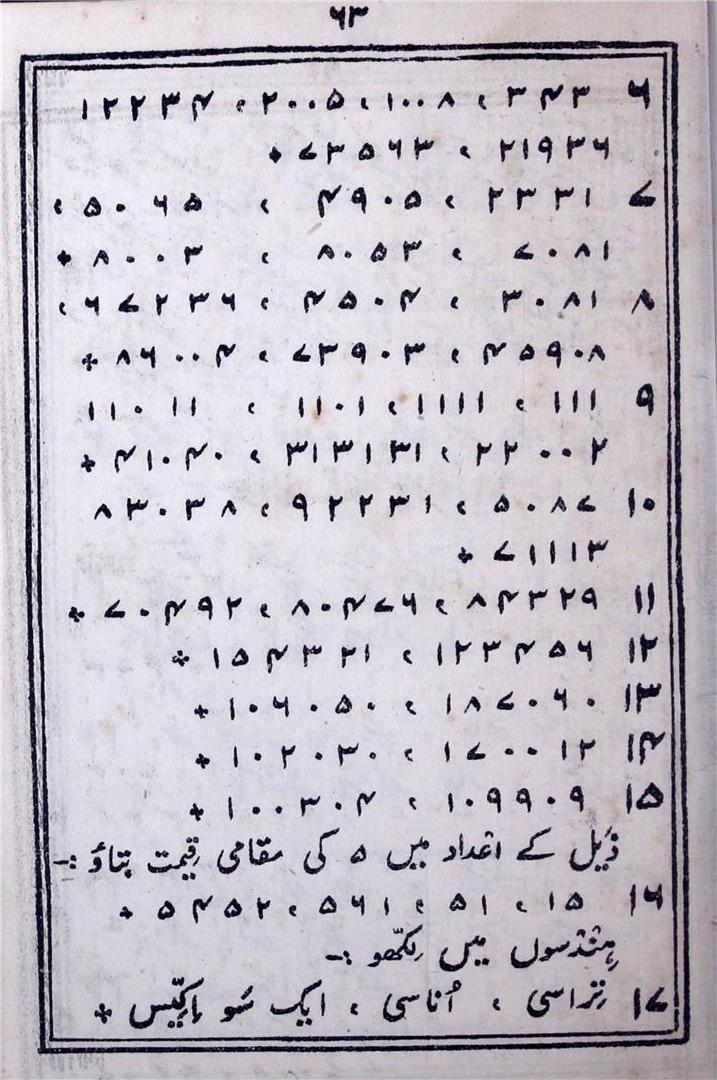 ۶۳
۶ ۳۴۳ ، ۱۰۰۸ ، ۲۰۰۵ ، ۱۲۲۳۴
۲۱۹۳۶ ، ۷۳۵۶۳ +
۷ ۲۳۳۱ ، ۴۹۰۵ ، ۵۰۶۵ ،
۷۰۸۱ ، ۸۰۵۳ ، ۸۰۰۳ +
۸ ۳۰۸۱ ، ۴۵۰۴ ، ۶۷۲۳۶ ،
۴۵۹۰۸ ، ۷۳۹۰۳ ، ۸۶۰۰۴ +
۹ ۱۱۱ ، ۱۱۱۱ ، ۱۱۰۱ ، ۱۱۰۱۱
۲۲۰۰۲ ، ۳۱۳۱۳۱ ، ۴۱۰۴۰ +
۱۰ ۵۰۸۷ ، ۹۲۲۳۱ ، ۸۳۰۳۸
۷۱۱۱۳ +
۱۱ ۸۴۳۲۹ ، ۸۰۴۷۶ ، ۷۰۴۹۲ +
۱۲ ۱۲۳۴۵۶ ، ۱۵۴۳۲۱ +
۱۳ ۱۸۷۰۶۰ ، ۱۰۶۰۵۰ +
۱۴ ۱۷۰۰۱۲ ، ۱۰۲۰۳۰ +
۱۵ ۱۰۹۹۰۹ ، ۱۰۰۳۰۴ +
ذَیل کے اعداد میں ۵ کی مقامی قِیمت بتاؤ :-
۱۶ ۱۵ ، ۵۱ ، ۵۶۱ ، ۵۴۵۲ +
ہِنْدْسوں میں لِکھّو :-
۱۷ تِراسی ، اُناسی ، ایک سَو بائیس +